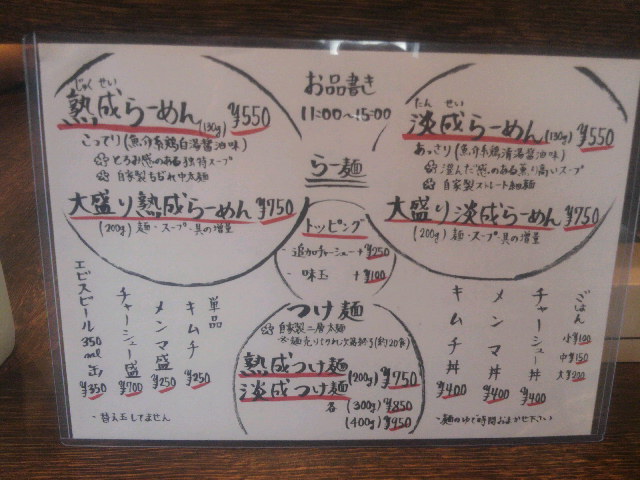 お品書き
11:00〜15:00
らー麺
じゃくせい
熟成らーめん(130g) ¥550
こってり(魚介系鶏白湯醤油味)
とろみ感のある独特スープ
自家製ちぢれ中太麺
大盛り熟成らーめん ¥750
(200g) 麺・スープ・具の増量
たんせい
淡成らーめん(130g) ¥550
あっさり(魚介系鶏清湯醤油味)
澄んだ感のある薫り高いスープ
自家製ストレート細麺
大盛り淡成らーめん ¥750
(200g) 麺・スープ・具の増量
トッピング
・追加チャーシュー+¥250
・味玉 +¥100
つけ麺
自家製二層太麺
※麺売り切れ次第終了(約20食)
熟成つけ麺
淡成つけ麺 (200g) ¥750
各 (300g) ¥850
(400g) ¥950
単品
キムチ ¥250
メンマ盛 ¥250
チャーシュー盛 ¥700
エビスビール350ml缶 ¥350
・替え玉してません
ごはん
小¥100
中¥150
大¥200
チャーシュー丼 ¥400
メンマ丼 ¥400
キムチ丼 ¥400
・麺のゆで時間およませ下さい